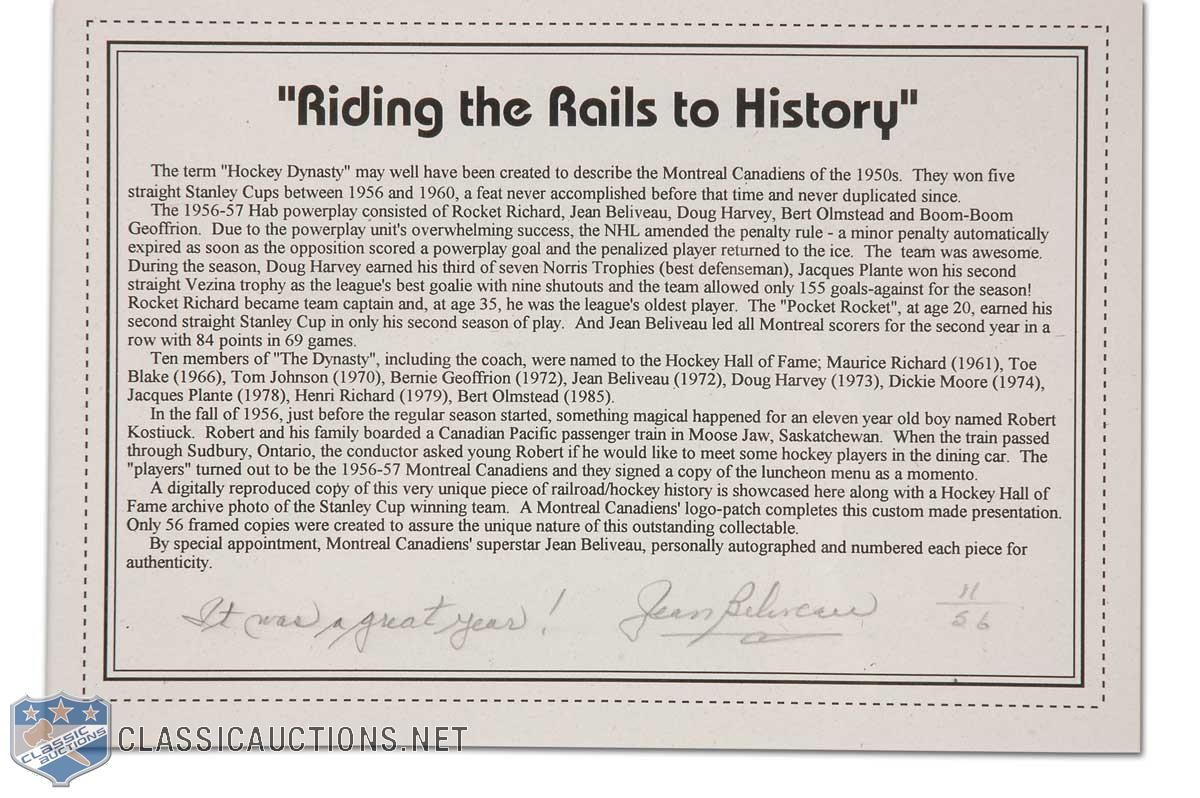 "Riding the Rails to History"
The term "Hockey Dynasty" may well have been created to describe the Montreal Canadiens of the 1950s. They won five
straight Stanley Cups between 1956 and 1960, a feat never accomplished before that time and never duplicated since.
The 1956-57 Hab powerplay consisted of Rocket Richard, Jean Beliveau, Doug Harvey, Bert Olmstead and Boom-Boom
Geoffrion. Due to the powerplay unit's overwhelming success, the NHL amended the penalty rule - a minor penalty automatically
expired as soon as the opposition scored a powerplay goal and the penalized player returned to the ice. The team was awesome.
During the season, Doug Harvey earned his third of seven Norris Trophies (best defenseman), Jacques Plante won his second
straight Vezina trophy as the league's best goalie with nine shutouts and the team allowed only 155 goals-against for the season!
Rocket Richard became team captain and, at age 35, he was the league's oldest player. The "Pocket Rocket", at age 20, earned his
second straight Stanley Cup in only his second season of play. And Jean Beliveau led all Montreal scorers for the second year in a
row with 84 points in 69 games.
Ten members of "The Dynasty", including the coach, were named to the Hockey Hall of Fame; Maurice Richard (1961), Toe
Blake (1966), Tom Johnson (1970), Bernie Geoffrion (1972), Jean Beliveau (1972), Doug Harvey (1973), Dickie Moore (1974),
Jacques Plante (1978), Henri Richard (1979), Bert Olmstead (1985).
In the fall of 1956, just before the regular season started, something magical happened for an eleven year old boy named Robert
Kostiuck. Robert and his family boarded a Canadian Pacific passenger train in Moose Jaw, Saskatchewan. When the train passed
through Sudbury, Ontario, the conductor asked young Robert if he would like to meet some hockey players in the dining car. The
"players" turned out to be the 1956-57 Montreal Canadiens and they signed a copy of the luncheon menu as a momento.
A digitally reproduced copy of this very unique piece of railroad/hockey history is showcased here along with a Hockey Hall of
Fame archive photo of the Stanley Cup winning team. A Montreal Canadiens' logo-patch completes this custom made presentation.
Only 56 framed copies were created to assure the unique nature of this outstanding collectable.
By special appointment, Montreal Canadiens' superstar Jean Beliveau, personally autographed and numbered each piece for
authenticity.
It was a great year! Jean Beliveau 11/56
CLASSIC AUCTIONS
CLASSICAUCTIONS.NET